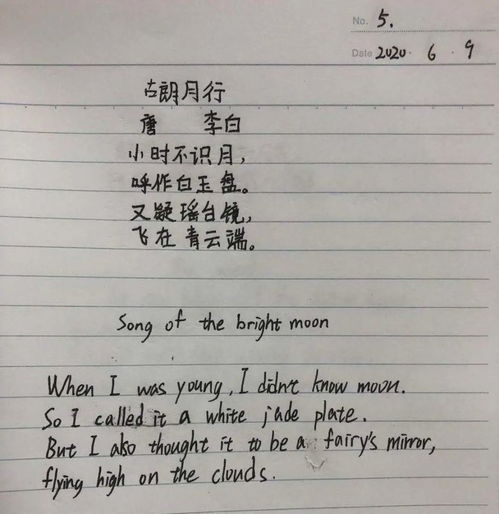 No. 5.
Date 2020 . 6 . 9
古朗月行
唐 李白
小时不识月，
呼作白玉盘。
又疑瑶台镜，
飞在青云端。
Song of the bright moon
When I was young, I didn't know moon.
So I called it a white jade plate.
But I also thought it to be a fairy's mirror,
flying high on the clouds.